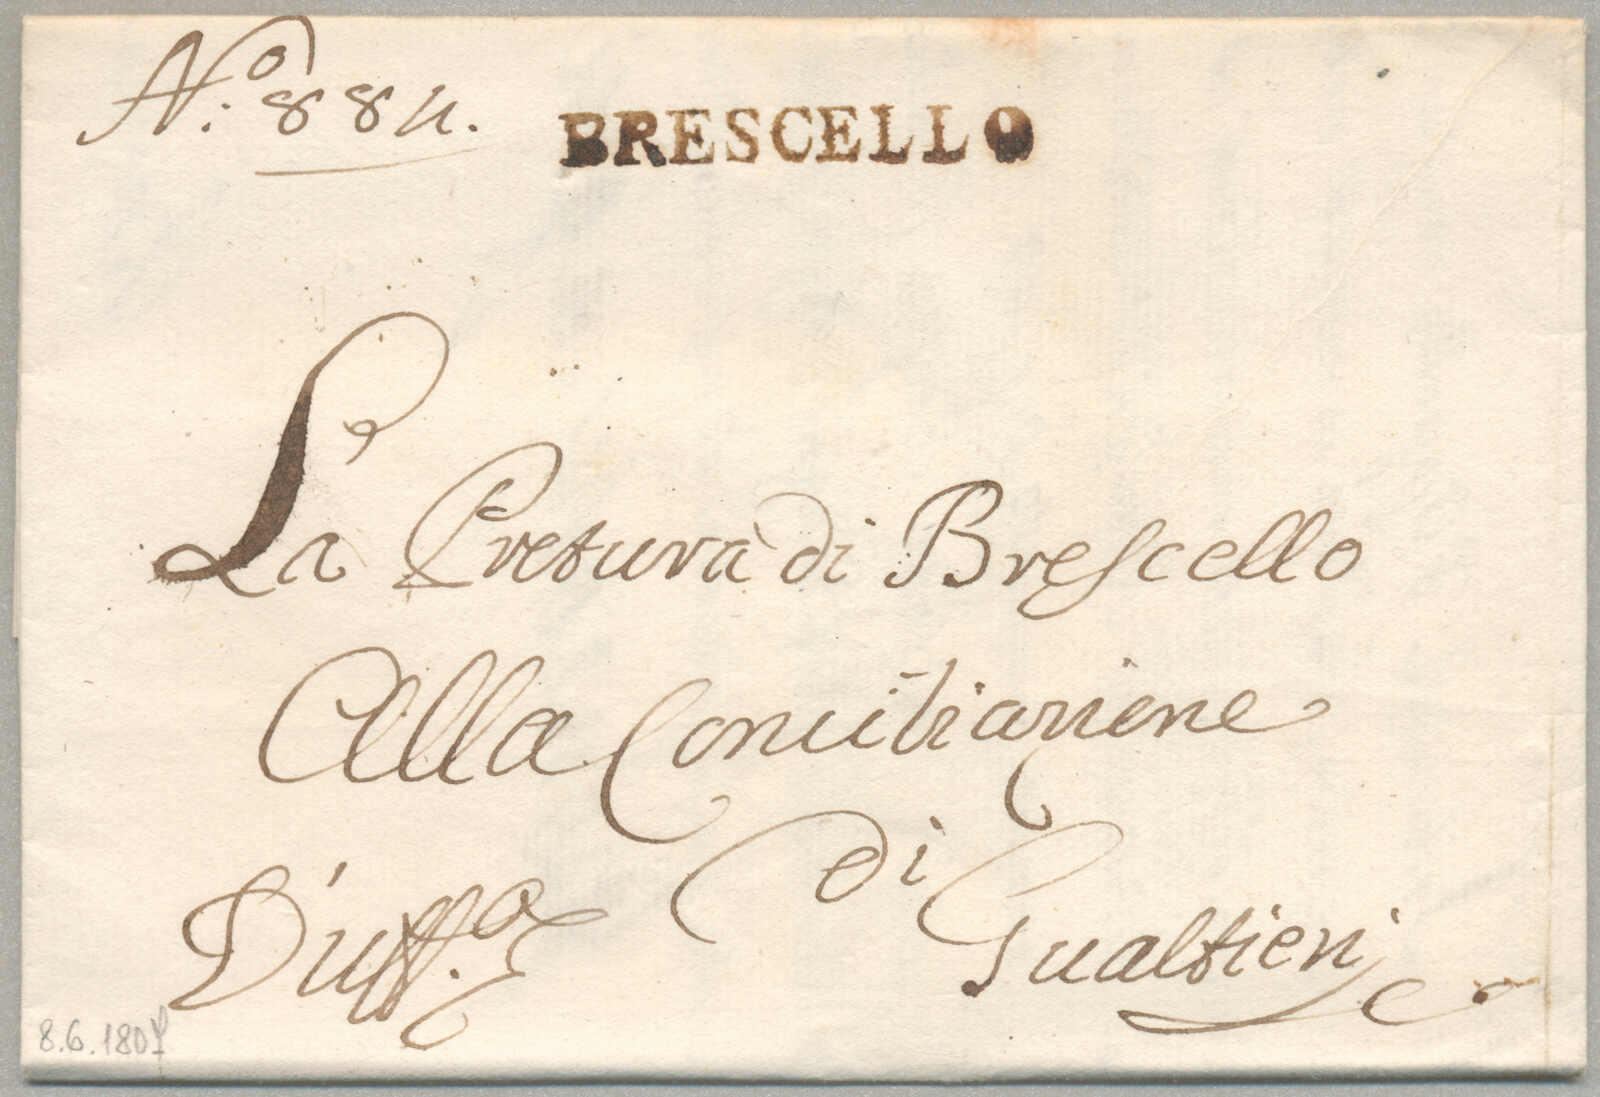 N.º 884.
BRESCELLO
La Pretura di Brescello
Alla Conciliazione
di
Gualtieri
D'uff.º
8.6.180